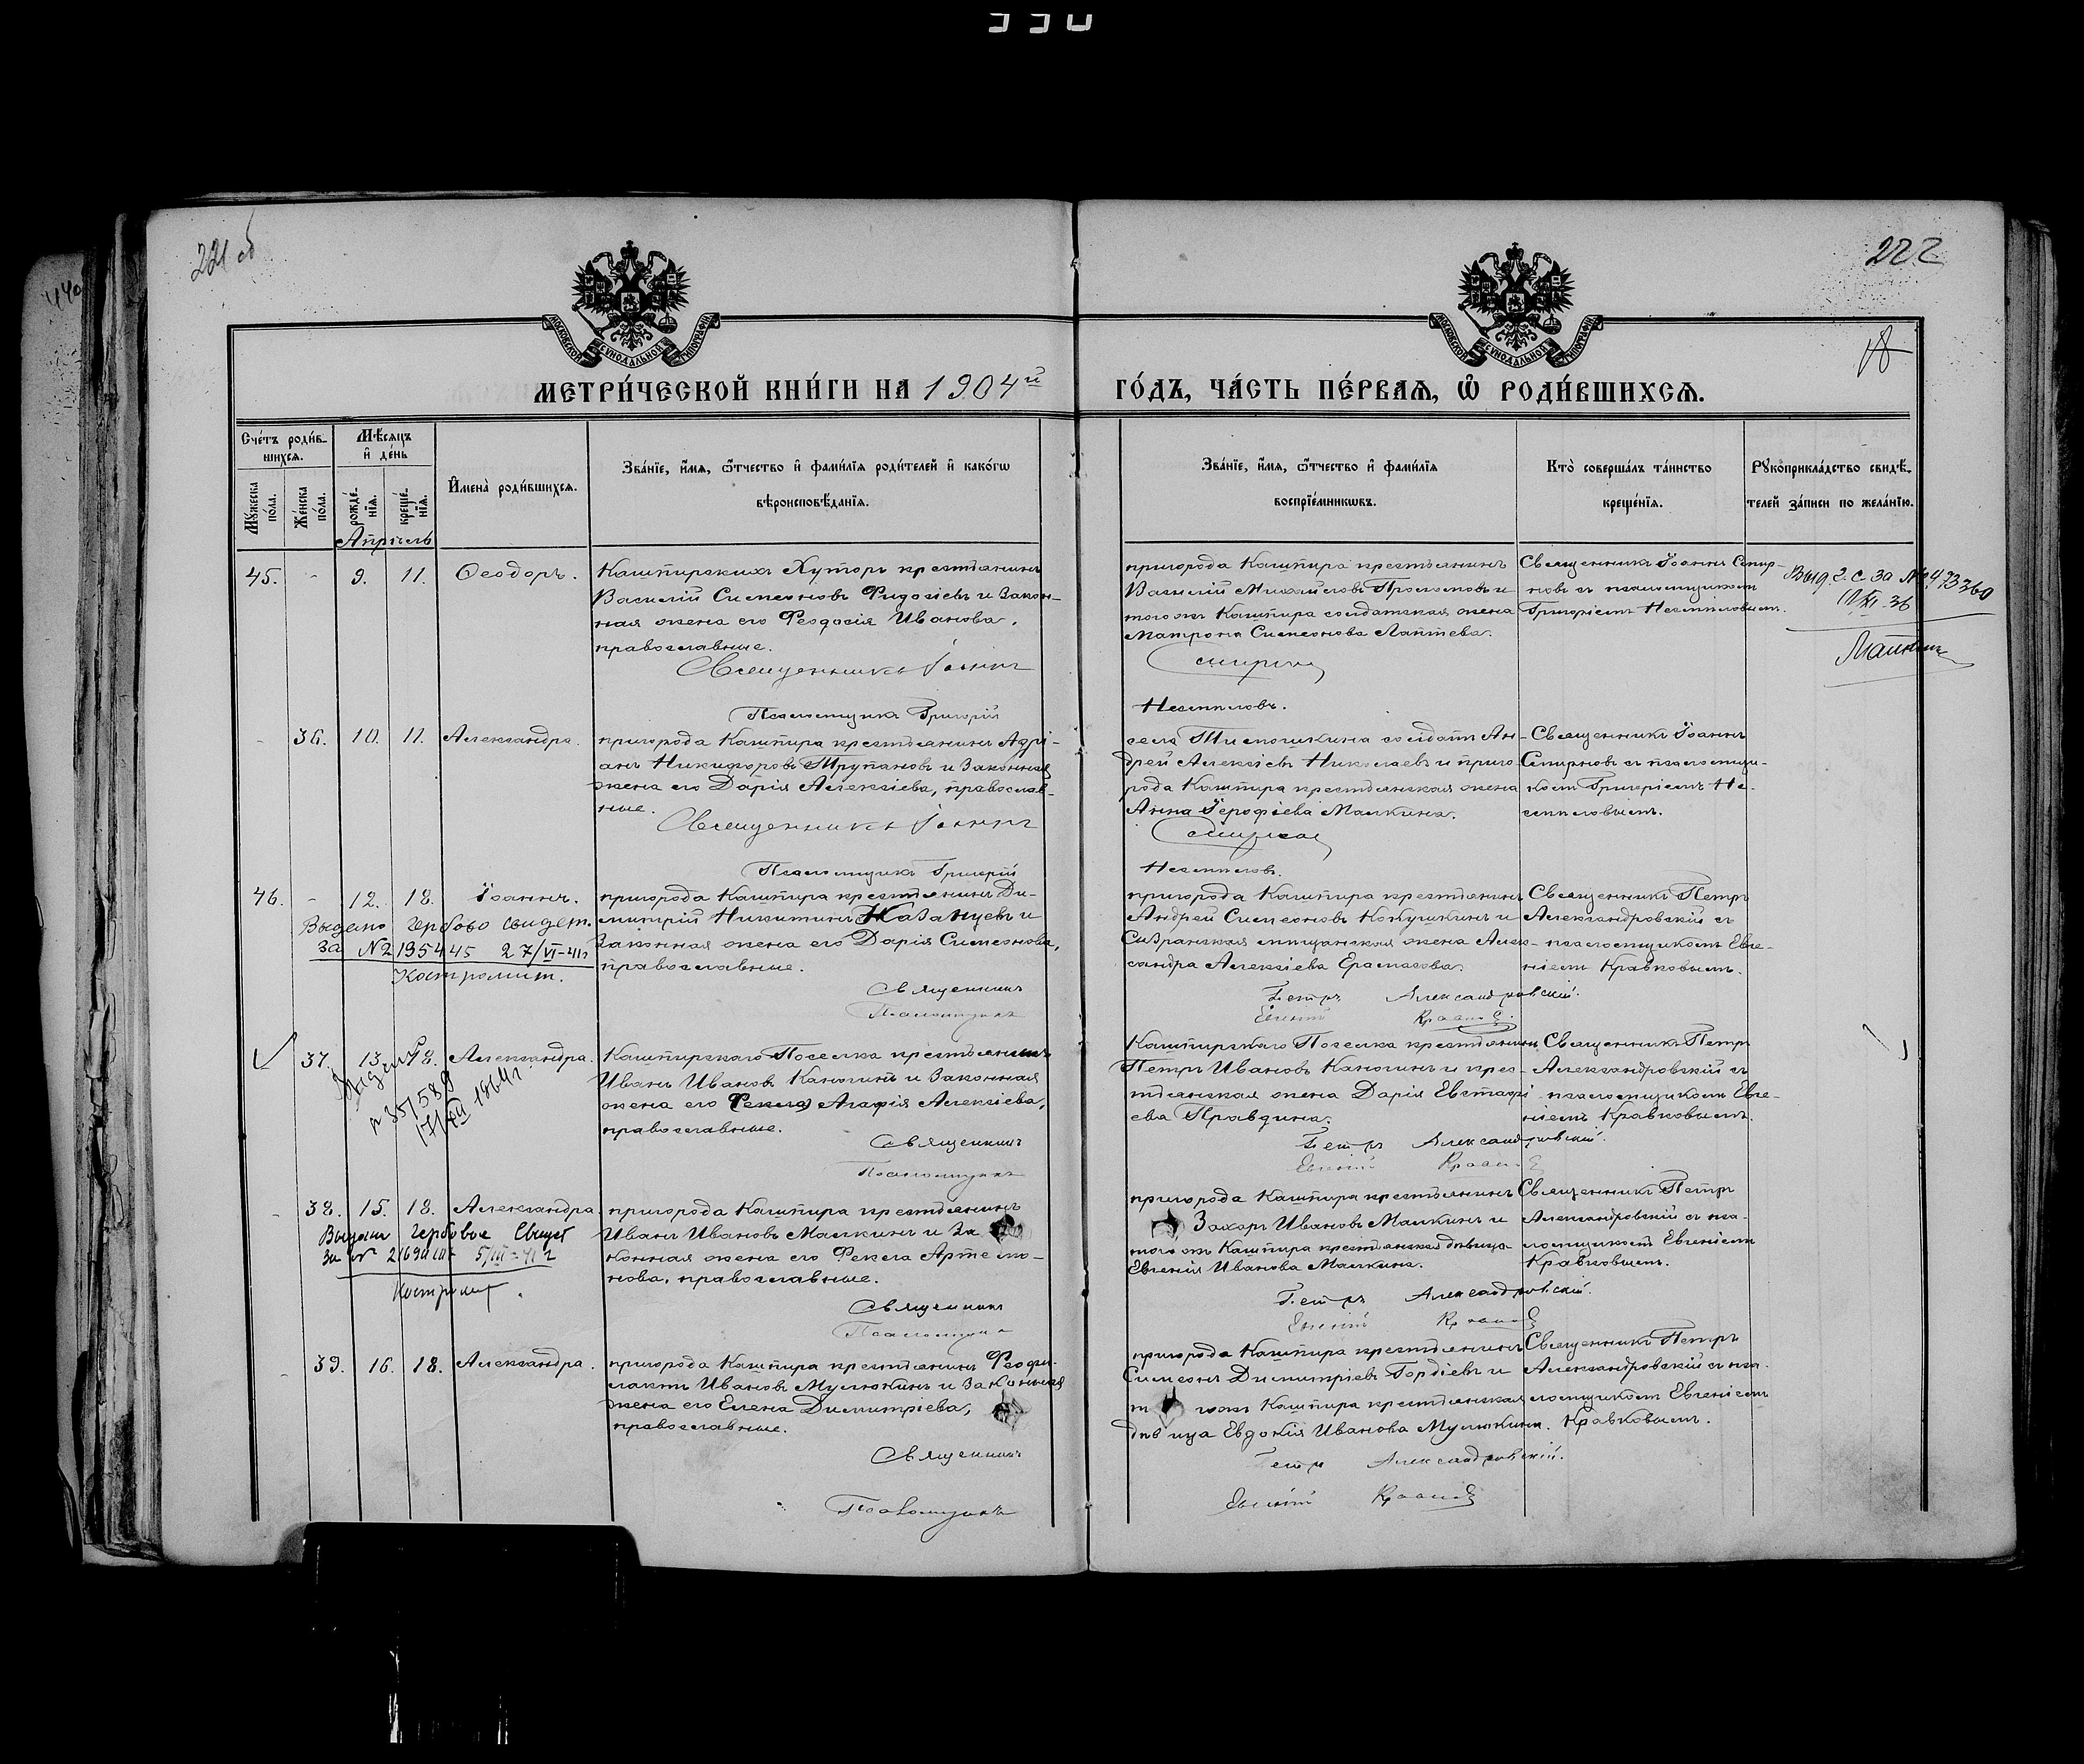 330
221 об
222
18
МОСКОВСКОЙ СѴНОДАЛЬНОЙ ТИПОГРАФІИ
МОСКОВСКОЙ СѴНОДАЛЬНОЙ ТИПОГРАФІИ
МЕТРИ́ЧЕСКОЙ КНИ́ГИ НА 1904й
ГО́ДЪ, ЧА́СТЬ ПЕ́РВАѦ, Ѡ РОДИ́ВШИХСѦ.
Сче́тъ роди́в-
шихсѧ.
Мꙋжеска по́ла.
Же́нска по́ла.
Мѣ́сѧцъ
и де́нь
рожде́-
нїѧ.
креще́-
нїѧ.
Апрѣль
Имена̀ роди́вшихсѧ.
Зва́нїе, и҆́мѧ, ѻ҆́тчество и҆ фами́лїѧ роди́телей и҆ како́гѡ
вѣроисповѣ́данїѧ.
Зва́нїе, и҆́мѧ, ѻ҆́тчество и҆ фами́лїѧ
воспрїе́мникѡвъ.
Кто̀ соверша́лъ та́инство
креще́нїѧ.
Рꙋкоприкла́дство свидѣ́-
телей за́писи по жела́нїю.
45. - 9. 11. Ѳеодоръ.
Кашпирскихъ Хуторъ крестьянинъ
Василій Симеоновъ Фидосіевъ и закон-
ная жена его Феодосія Иванова,
православные.
Священникъ Іоаннъ
Псаломщикъ Григорій
пригорода Кашпира крестьянинъ
Василій Михайловъ и
тогожъ Кашпира солдатская жена
Матрона Симеонова Лаптева.
Смирнов
Несмиловъ.
Священникъ Іоаннъ Смир-
новъ съ псаломщикомъ
Григоріемъ Несмиловымъ.
Выд. за № 473360
- 36. 10. 11. Александра.
пригорода Кашпира крестьянинъ Адрі-
анъ Никифоровъ Трупановъ и законная
жена его Дарія Алексіева, православ-
ные.
Священникъ Іоаннъ
Псаломщикъ Григорій
села солдатъ Ан-
дрей Алексіевъ Николаевъ и приго-
рода Кашпира крестьянская жена
Анна Іерофіева Малкина.
Смирнов
Несмиловъ.
Священникъ Іоаннъ
Смирновъ съ псаломщи-
комъ Григоріемъ Не-
смиловымъ.
46. - 12. 18. Іоаннъ.
Выдано гербово свидет.
за №2195445 27/VI-41г
Костромит.
пригорода Кашпира крестьянинъ Ди-
митрій Никитинъ Казанцевъ и
законная жена его Дарія Симеонова,
православные.
Священникъ
Псаломщикъ
пригорода Кашпира крестьянинъ
Андрей Симеоновъ Кокушкинъ и
Сызранская мищанская жена Алек-
сандра Алексіева Ерамасова.
Петръ Александровскій.
Евгеній Кравков
Священникъ Петръ
Александровскій съ
псаломщикомъ Евге-
ніемъ Кравковымъ.
37. 13. 18. Александра.
№351589
17/XII 1964г.
Кашпирскаго Поселка крестьянинъ
Иванъ Ивановъ Канюгинъ и законная
жена его Агафія Алексіева,
православные.
Священникъ
Псаломщикъ
Кашпирскаго Поселка крестьянинъ
Петръ Ивановъ Канюгинъ и крес-
тьянская жена Дарія Евстафі-
ева Правдина.
Петръ Александровскій.
Евгеній Кравков
Священникъ Петръ
Александровскій съ
псаломщикомъ Евге-
ніемъ Кравковымъ.
- 38. 15. 18. Александра
Выдано гербовое Свидет
Костромит.
пригорода Кашпира крестьянинъ
Иванъ Ивановъ Малкинъ и за
конная жена его Фекла Артемо-
нова, православные.
Священникъ
Псаломщикъ
пригорода Кашпира крестьянинъ
Захаръ Ивановъ Малкинъ и
тогожъ Кашпира крестьянская дѣвица
Евгенія Иванова Малкина.
Петръ Александровскій.
Евгеній Кравков
Священникъ Петръ
Александровскій съ пса-
ломщикомъ Евгеніемъ
Кравковымъ.
- 39. 16. 18. Александра.
пригорода Кашпира крестьянинъ Феофи-
лактъ Ивановъ Мулюкинъ и законная
жена его Елена Димитріева,
православные.
Священникъ
Псаломщикъ
пригорода Кашпира крестьянинъ
Симеонъ Димитріевъ Гордіевъ и
т гожъ Кашпира крестьянская
дѣвица Евдокія Иванова Мулюкина.
Петръ Александровскій.
Евгеній Кравков
Священникъ Петръ
Александровскій съ пса-
ломщикомъ Евгеніемъ
Кравковымъ.